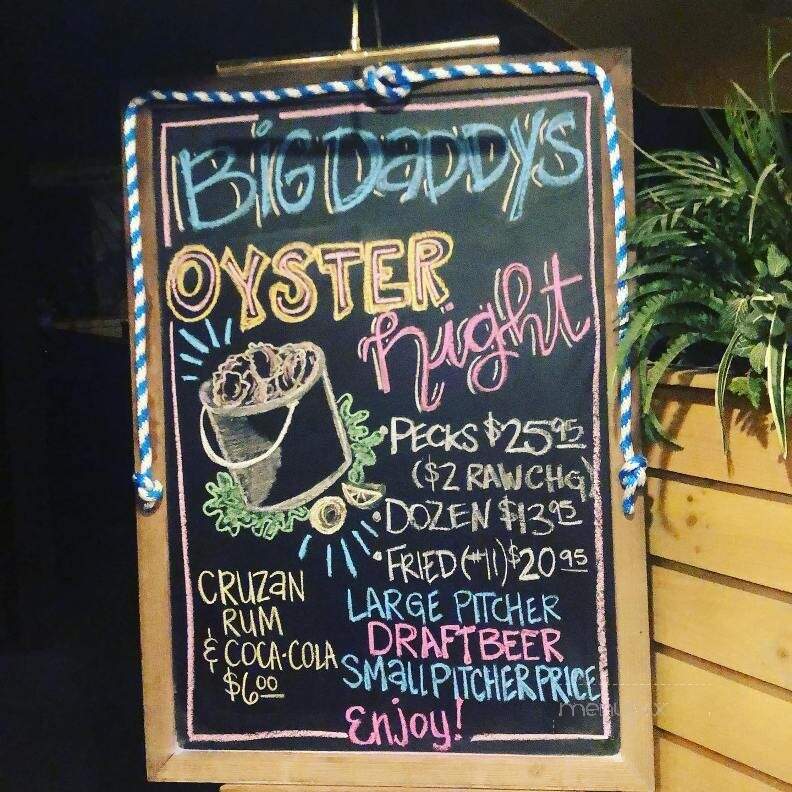 BiG DaDDYS
OYSTER
night
• PECKS $25.95
($2 RAW CHG)
• DOZEN $13.95
• FRIED (#11) $20.95
CRUZAN
RUM
& COCA-COLA
$6.00
LARGE PITCHER
DRAFT BEER
SMaLL PITCHER PRICE
Enjoy!